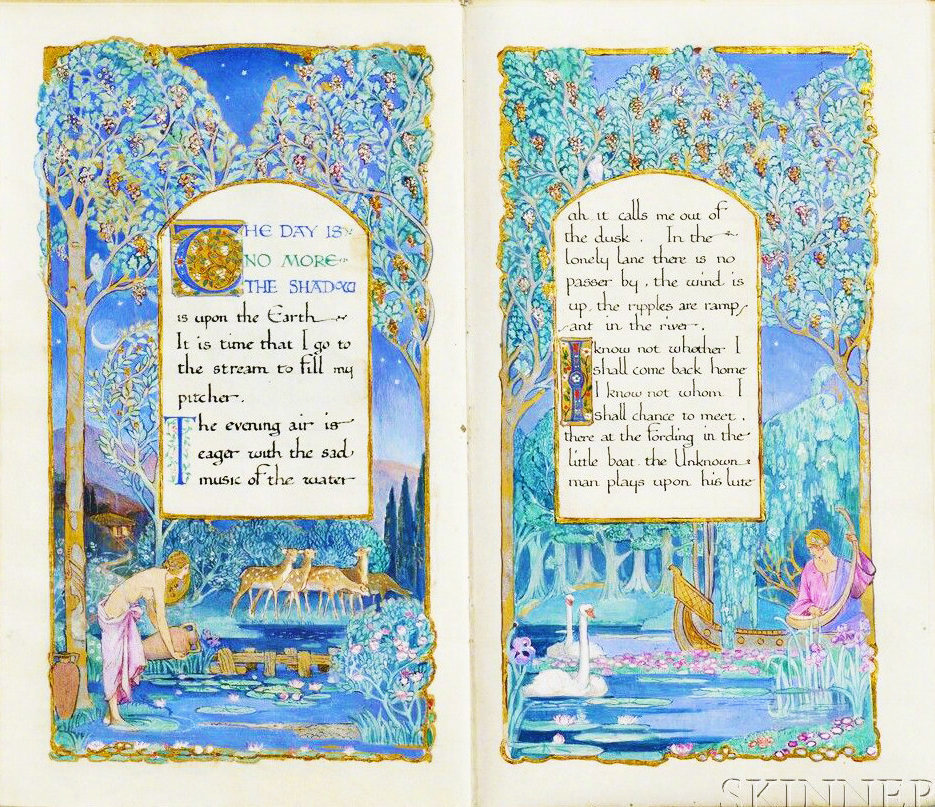 THE DAY IS
NO MORE
THE SHADOW
is upon the Earth
It is time that I go to
the stream to fill my
pitcher.
The evening air is
eager with the sad
music of the water
ah it calls me out of
the dusk. In the
lonely lane there is no
passer by, the wind is
up, the ripples are ramp
ant in the river.
I know not whether I
shall come back home
I know not whom I
shall chance to meet,
there at the fording in the
little boat the Unknown
man plays upon his lute
SKINNER